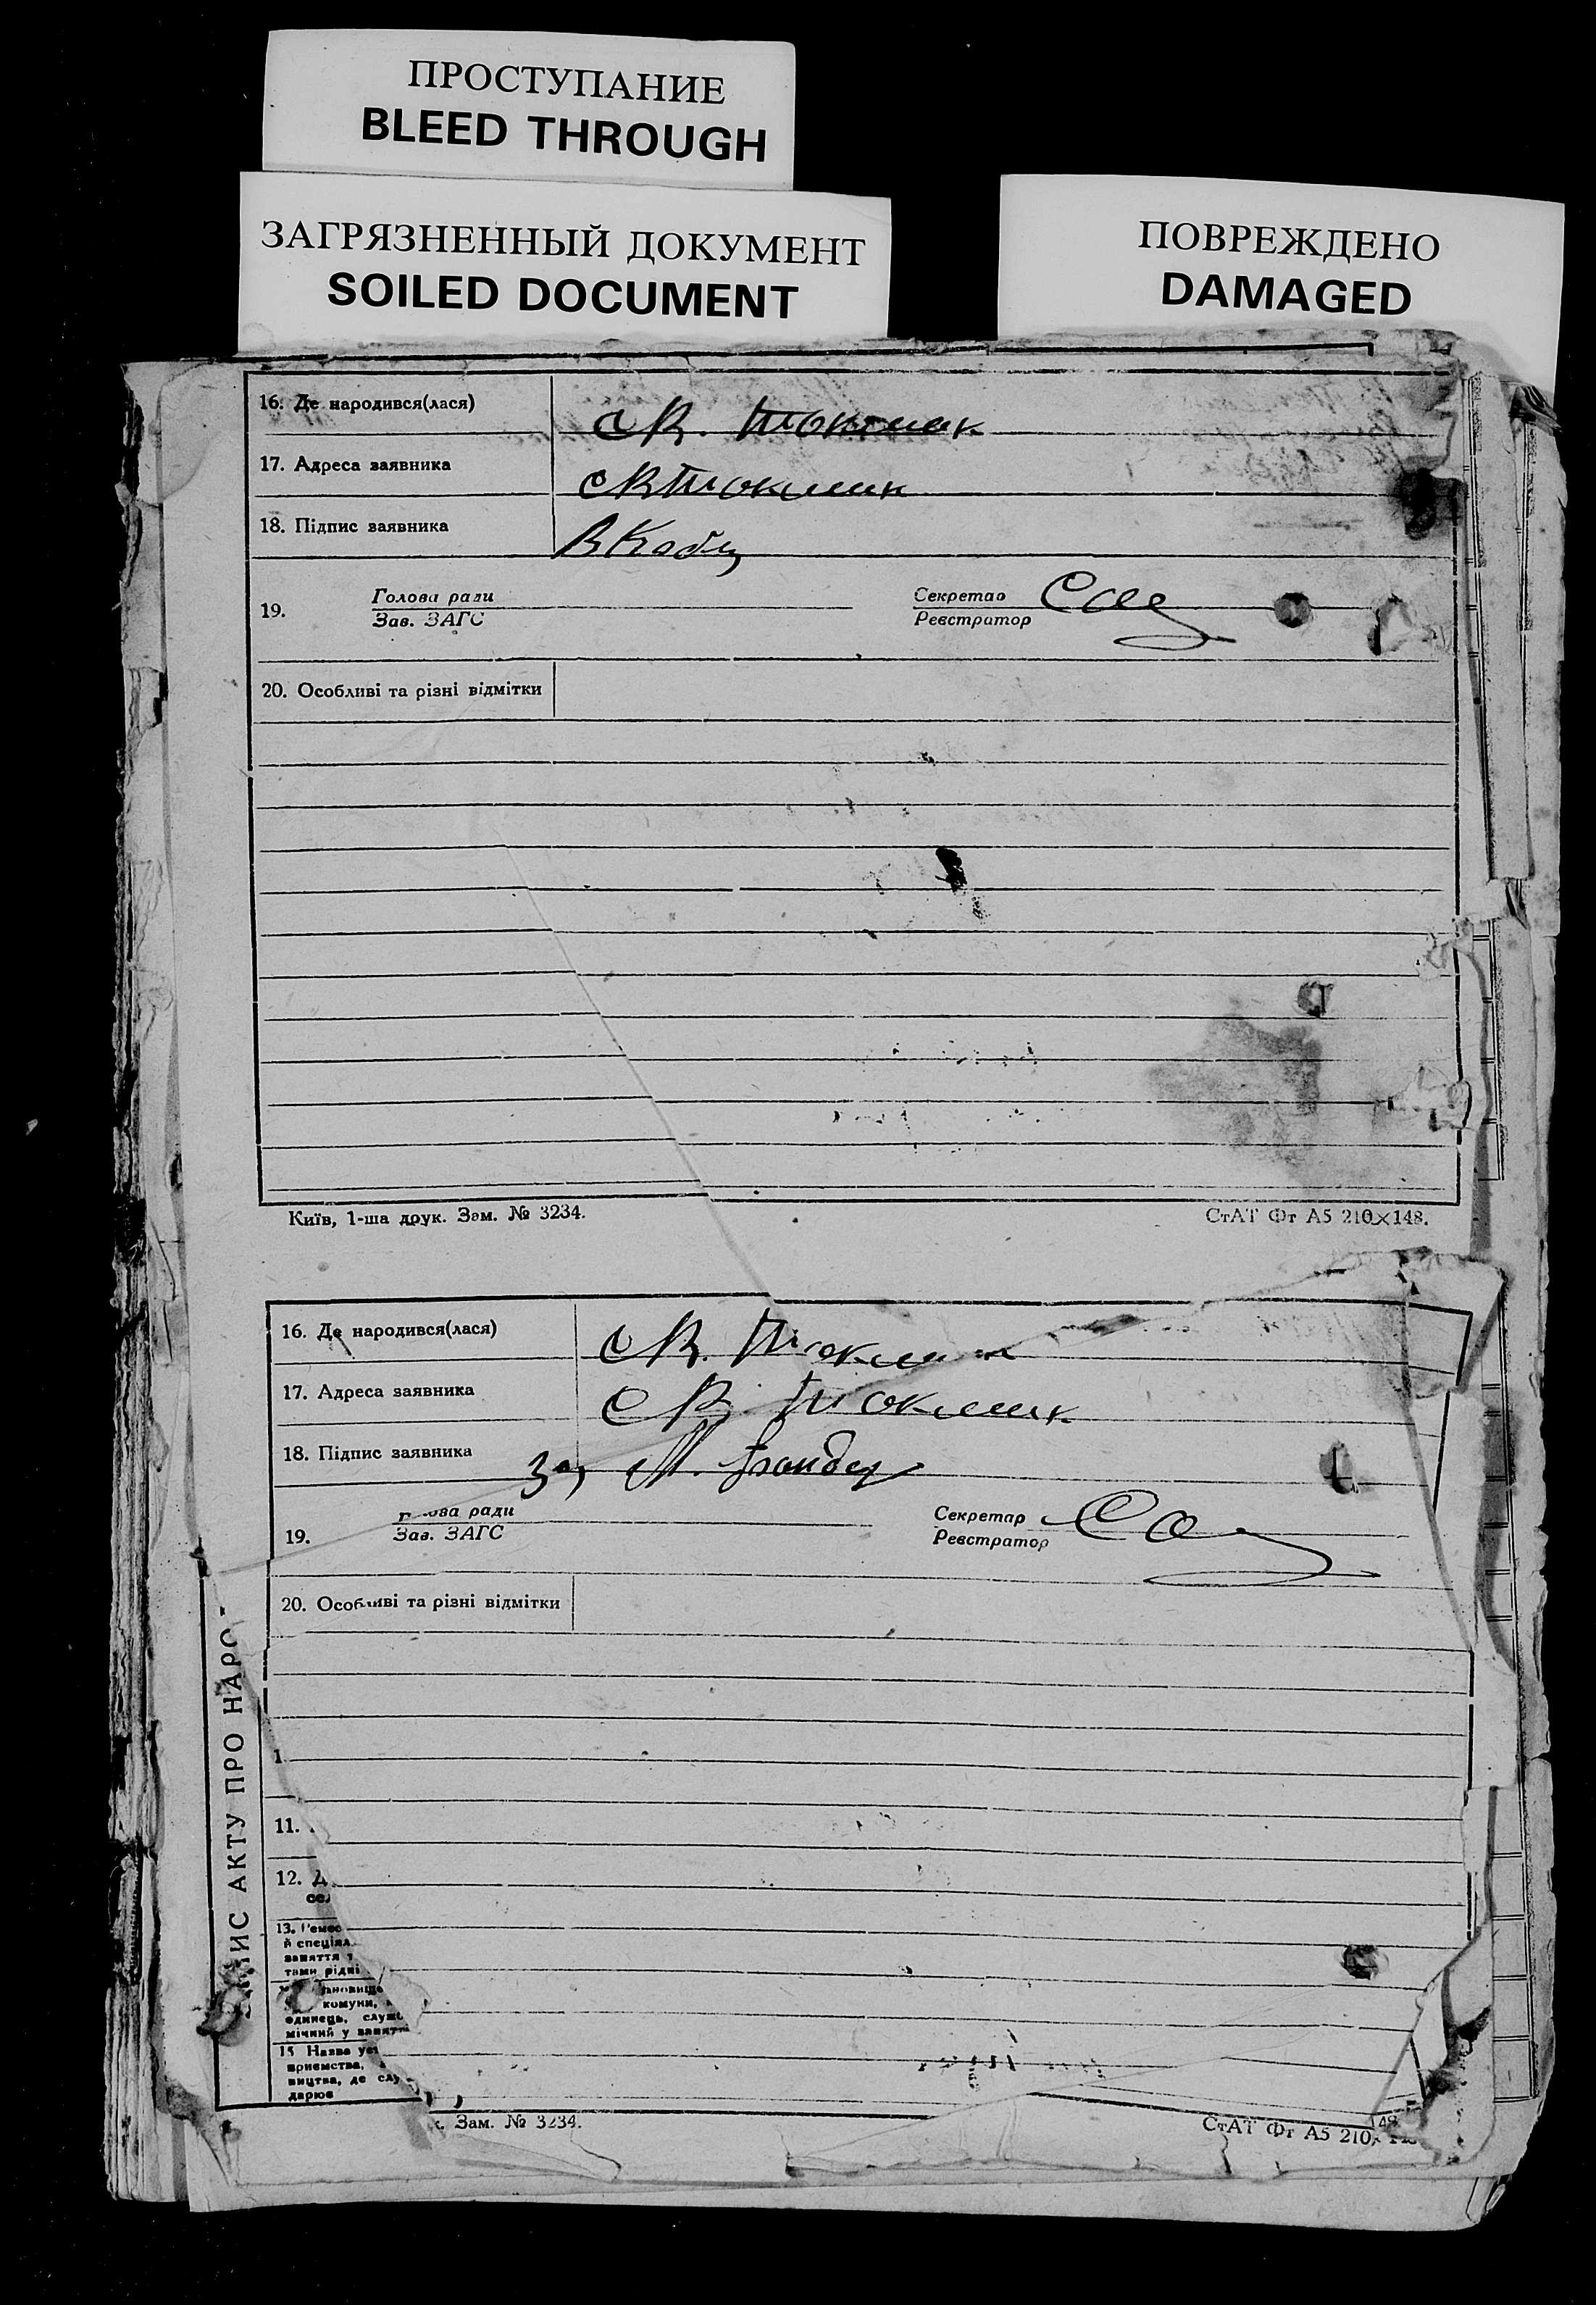 ПРОСТУПАНИЕ
BLEED THROUGH
ЗАГРЯЗНЕННЫЙ ДОКУМЕНТ
SOILED DOCUMENT
ПОВРЕЖДЕНО
DAMAGED
16. Де народився(лася) с В. Токмак
17. Адреса заявника с В Токмак
18. Підпис заявника
19. Голова ради
Зав. ЗАГС
Секретар
Реєстратор
20. Особливі та різні відмітки
Київ, 1-ша друк. Зам. № 3234. СтАТ Фт А5 210×148.
16. Де народився(лася) с В. Токмак
17. Адреса заявника с В. Токмак
18. Підпис заявника за М.
19. ова ради
Зав. ЗАГС
Секретар
Реєстратор
20. Особливі та різні відмітки
ИС АКТУ ПРО НАРО
11.
12. Д
сел
13. Ремес
й спеціял
заняття т
тами рідні
ановище
комуни,
одинець, служ
мічний у занятт
15 Назва уст
приємства,
ництва, де слу
дарює
к. Зам. № 3234. СтАТ Фт А5 210